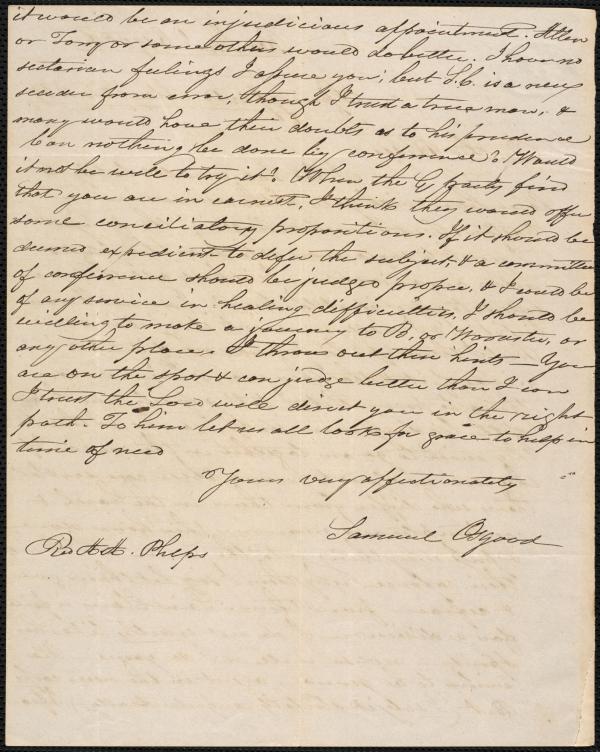 it would be an injudicious appointment. Allen
or Torry or some others would do better. I have no
sectarian feelings I assure you; but S.C. is a new
seceder from error, though I trust a true man, &
many would have their doubts as to his prudence
Can nothing be done by conference? Would
it not be well to try it? When the G party find
that you are in earnest, I think they would offer
some conciliatory propositions. If it should be
deemed expedient to defer the subject, & a committee
of conference should be judged proper, & I could be
of any service in healing difficulties, I should be
willing to make a journey to B. or Worcester, or
any other place. I throw out these hints — You
are on the spot & can judge better than I can
I trust the Lord will direct you in the right
path. To him let us all look for grace to help in
time of need
Yours very affectionately
Samuel Osgood
Rev A A. Phelps